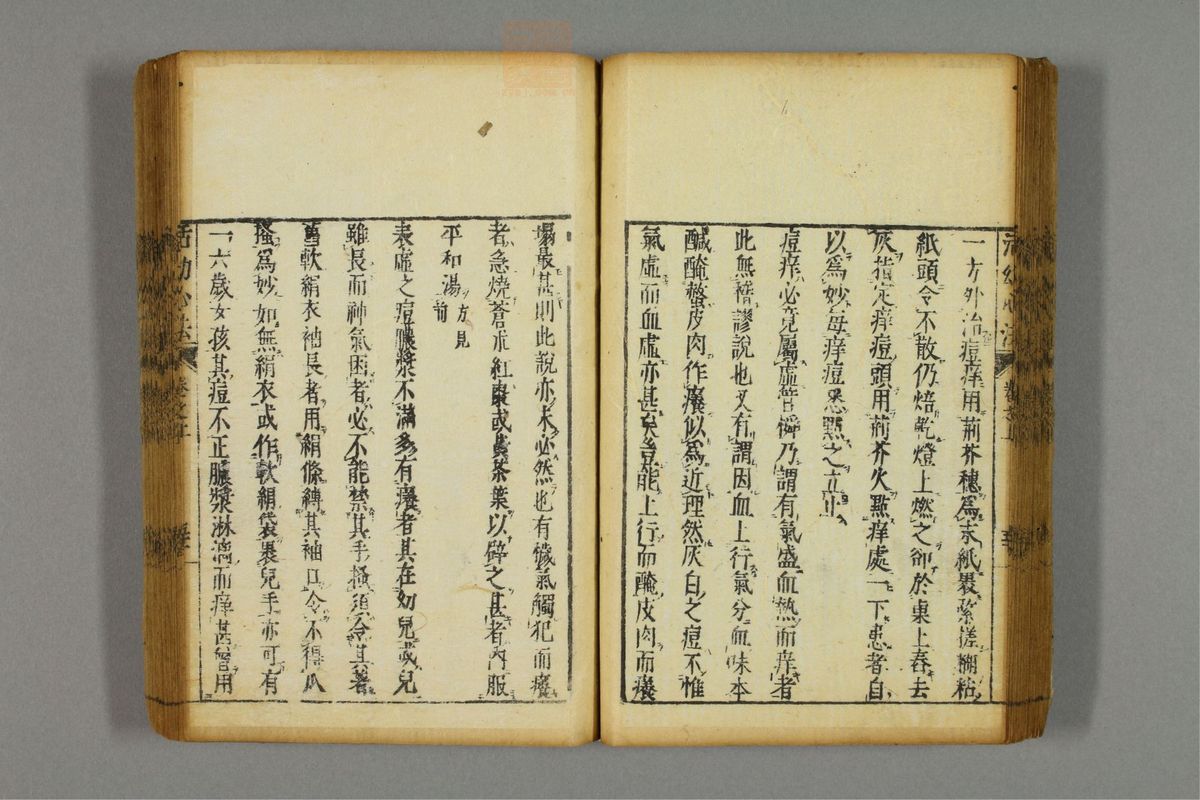 一方外治痘痒用荊芥穗爲末紙裹緊搓糊粘
紙頭令不散仍焙乾燈上燃之卻於桌上舂去
灰指定痒痘頭用荊芥火點痒處一下患者自
以爲妙每痒痘悉點之立止
痘痒必竟屬虛昔儕乃謂有氣盛血熱而痒者
此無稽謬說也又有謂因血上行氣分血味本
醎醃螫皮肉作癢似爲近理然灰白之痘不惟
氣虛而血虛亦甚矣豈能上行而醃皮肉而癢
塌最甚則此說亦未必然也有穢氣觸犯而癢
者急燒蒼朮紅棗或臭茶葉以辟之甚者內服
平和湯方見前
表虛之痘膿漿不滿多有癢者其在幼兒或兒
雖長而神氣困者必不能禁其手搔須令其著
舊軟絹衣袖長者用絹條縛其袖口令不得爪
搔爲妙如無絹衣或作軟絹袋裹兒手亦可有
一六歲女孩其痘不正膿漿淋漓而痒甚曾用
活幼心法 卷之上